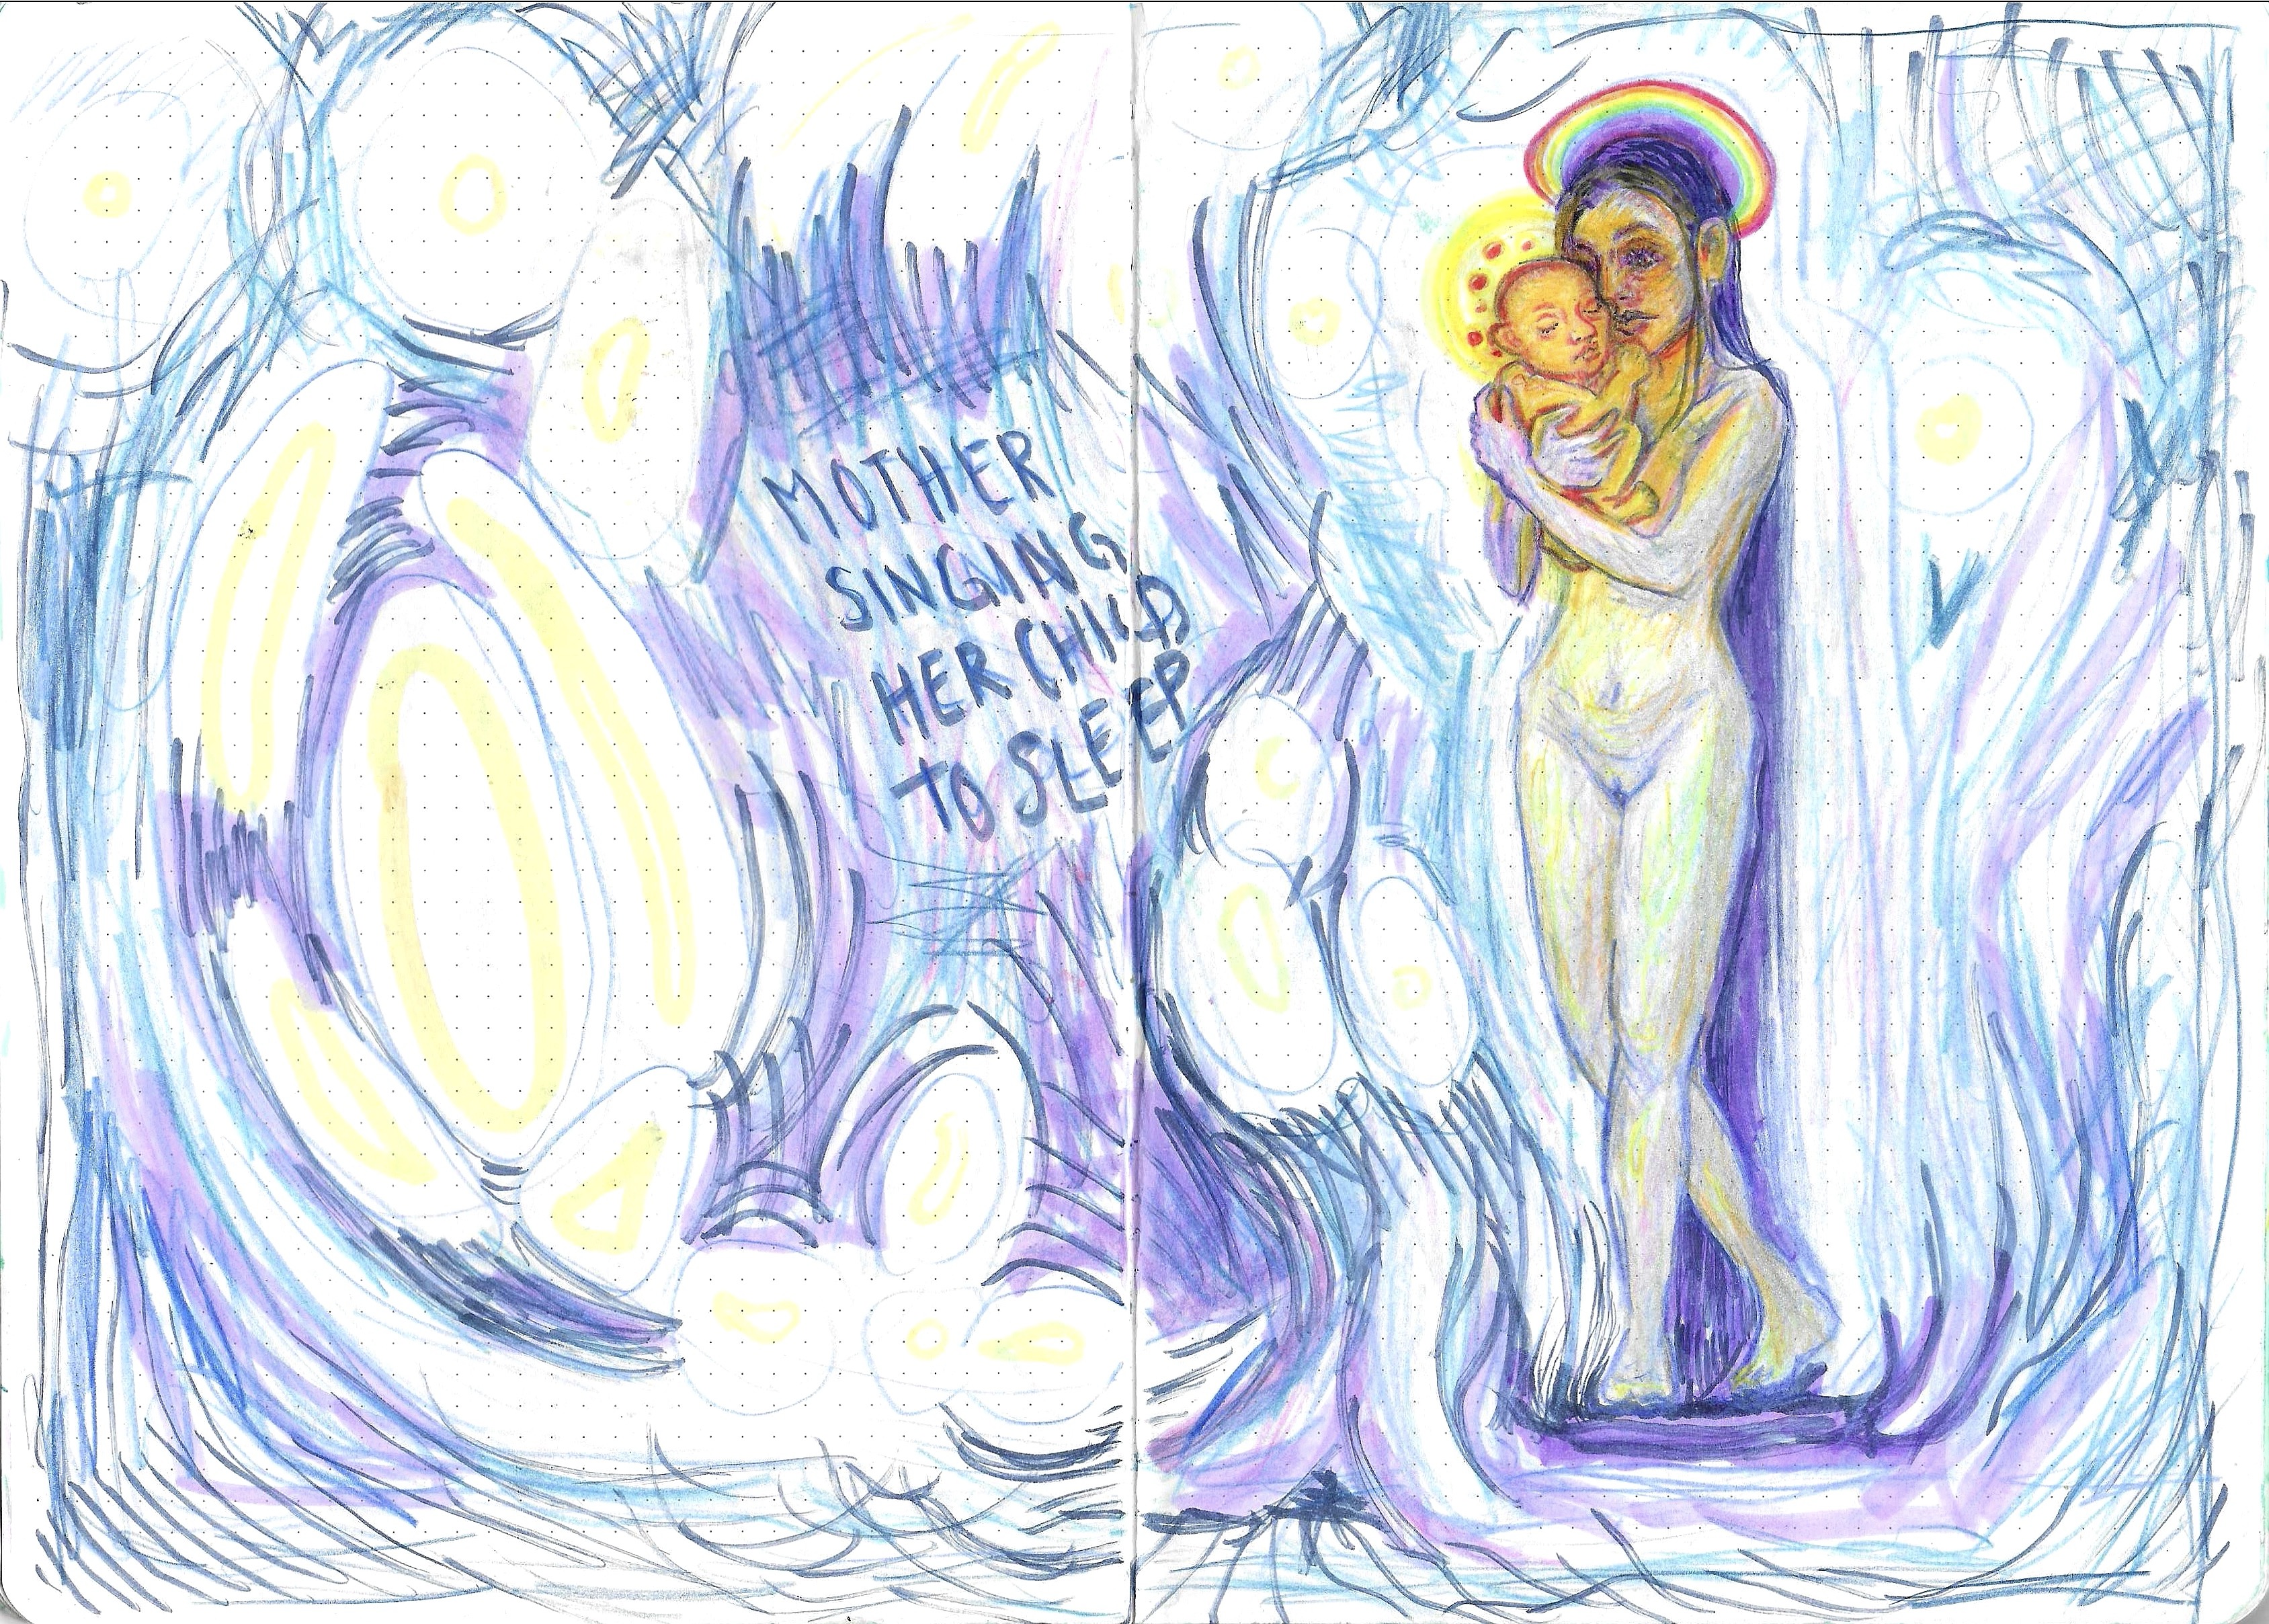 MOTHER
SINGING
HER CHILD
TO SLEEP